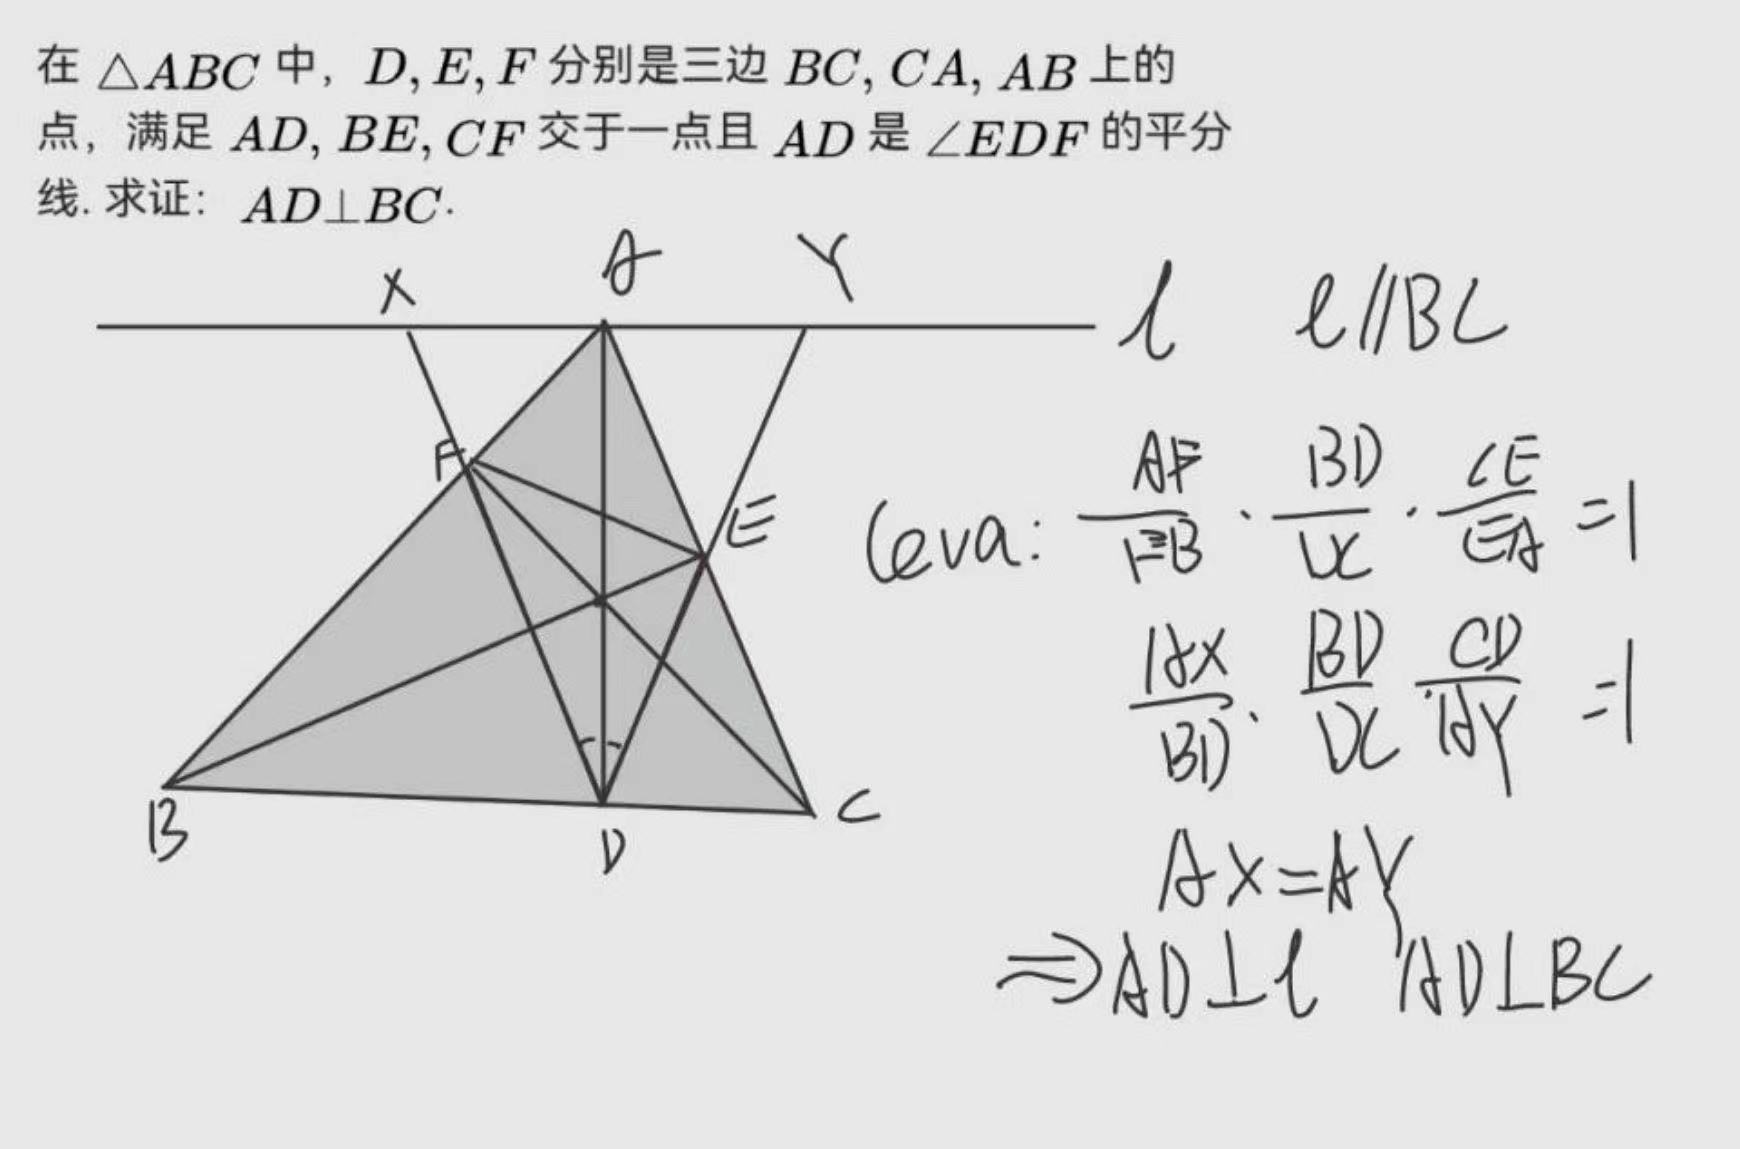 在 △ABC 中，D, E, F 分别是三边 BC, CA, AB 上的
点，满足 AD, BE, CF 交于一点且 AD 是 ∠EDF 的平分
线. 求证： AD⊥BC.
X A Y
l l∥BC
F E
Ceva: AF/FB · BD/DC · CE/EA =1
AX/BD · BD/DC · CD/AY =1
B D C
AX=AY
⇒AD⊥l AD⊥BC